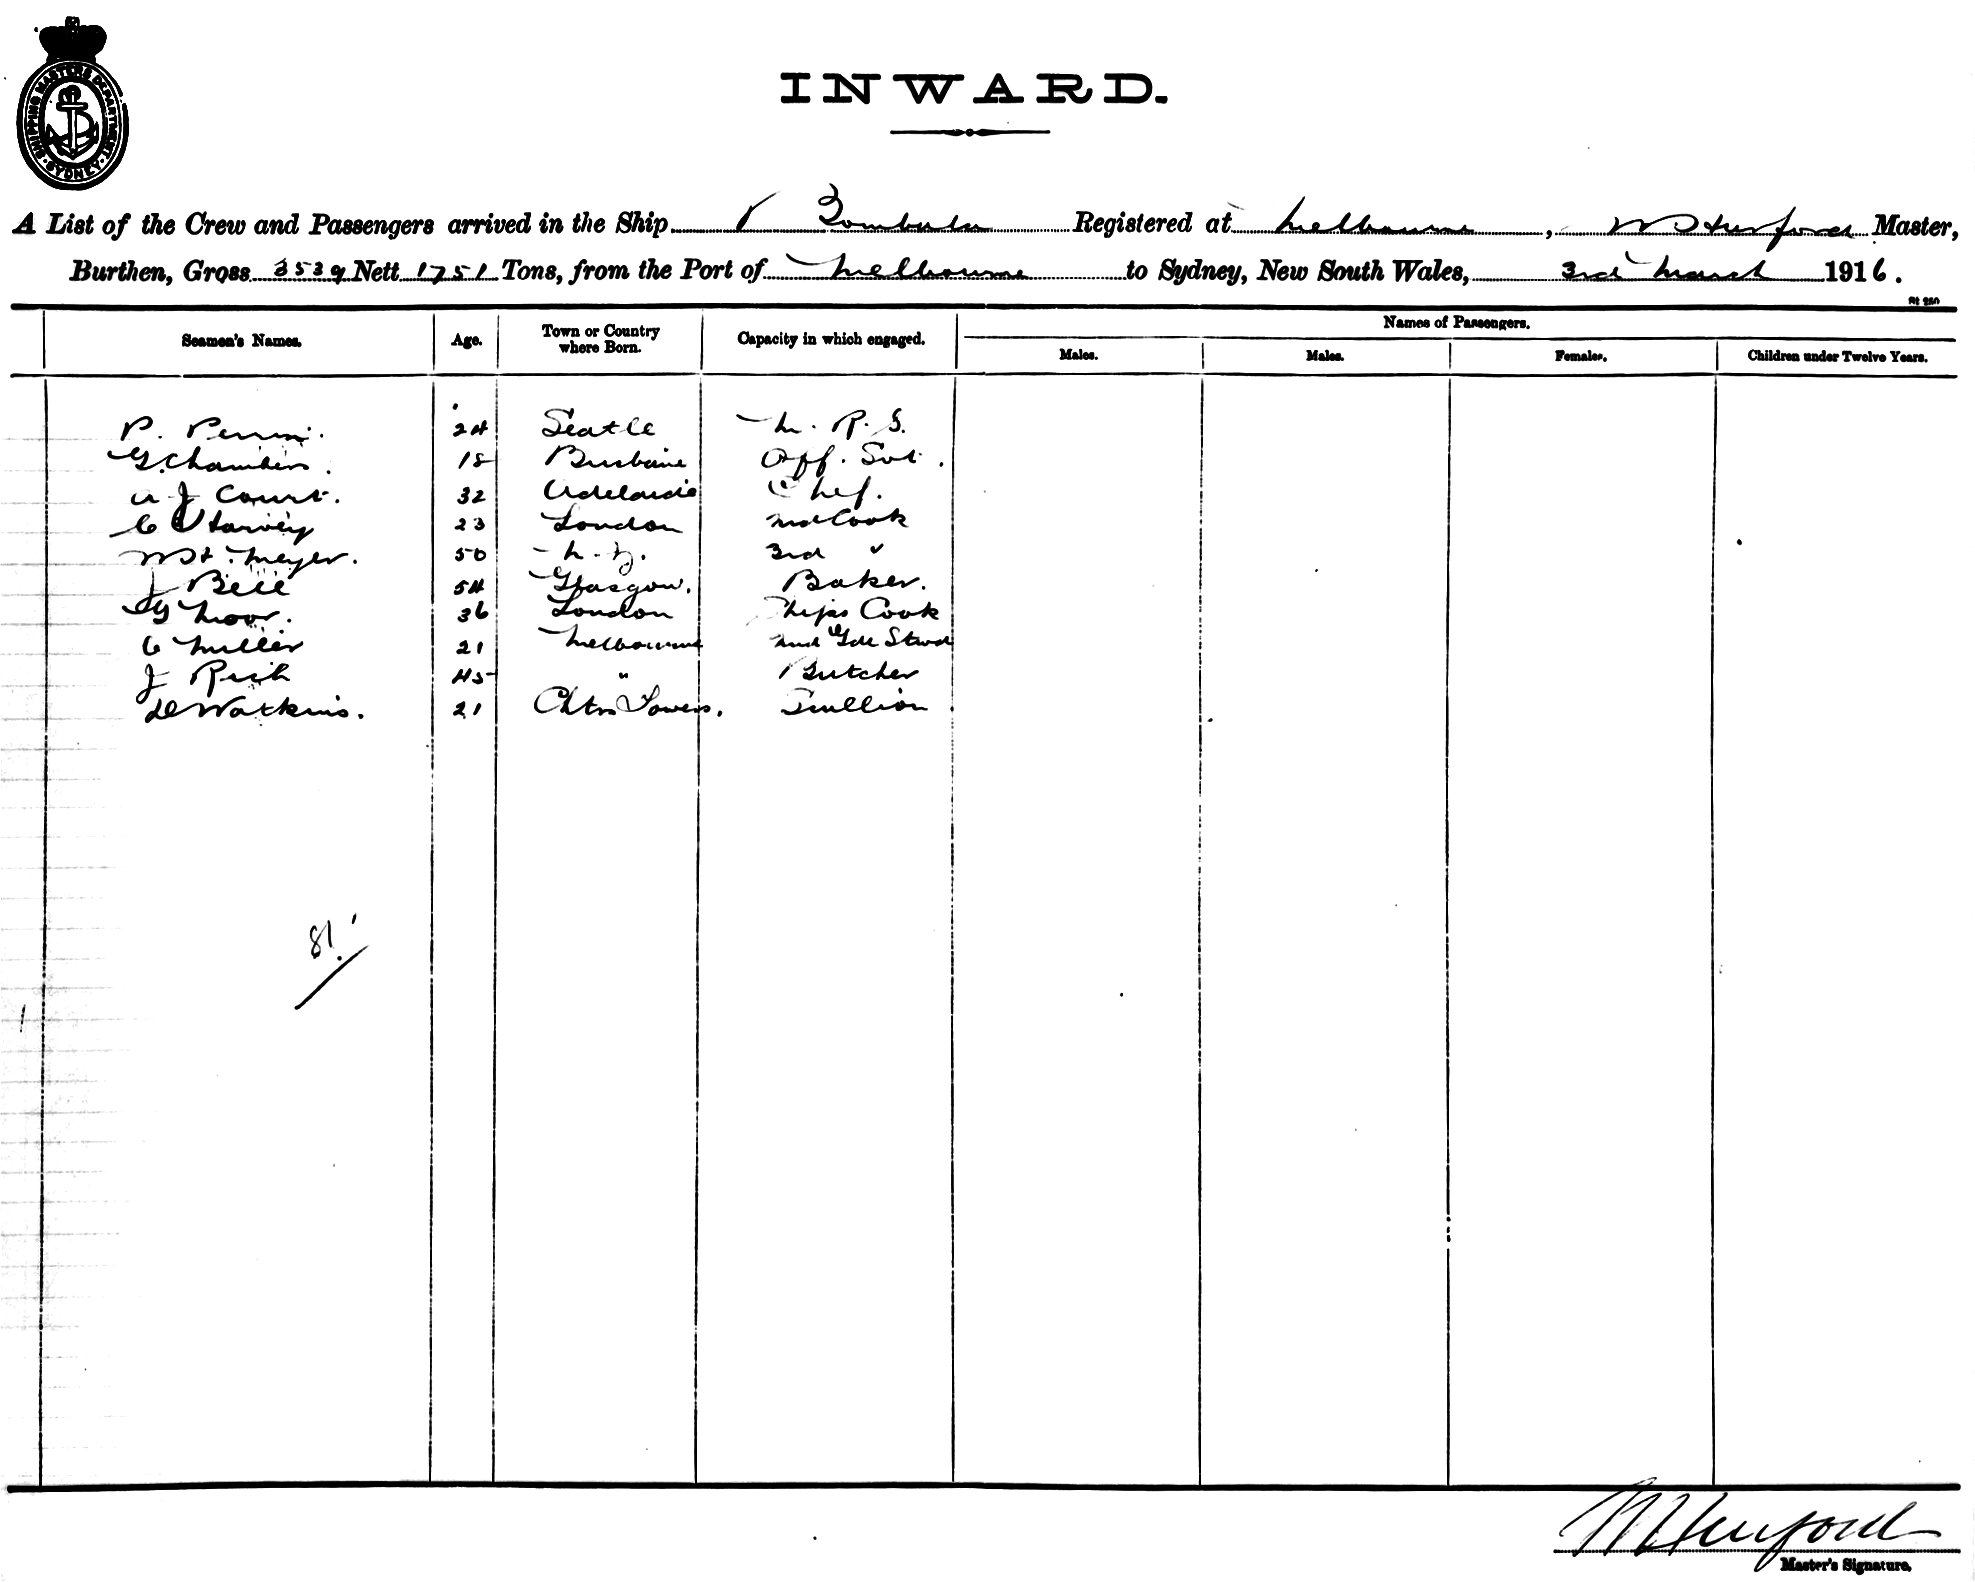 SHIPPING MASTERS DEPARTMENT · SYDNEY ·
INWARD.
A List of the Crew and Passengers arrived in the Ship Bombala Registered at Melbourne, W Hurford Master,
Burthen, Gross 3539 Nett 1751 Tons, from the Port of Melbourne to Sydney, New South Wales, 3rd March 1916.
Seamen's Names. Age. Town or Country where Born. Capacity in which engaged. Names of Passengers.
Males. Males. Females. Children under Twelve Years.
P. 24 Seatle M. R. S.
G. Chambers. 18 Brisbaine Off. Svt.
A J Court. 32 Adelaide Chef.
C Harvey 23 London 2nd Cook
W H. Meyer. 50 N. Z. 3rd "
J Bell 54 Glasgow. Baker.
G Moor. 36 London Ships Cook
C Miller 21 Melbourne 2nd Gde Stwd
J Rich 45 " Butcher
D Watkins. 21 Chtrs Towers. Scullion
81.
W Hurford
Master's Signature.